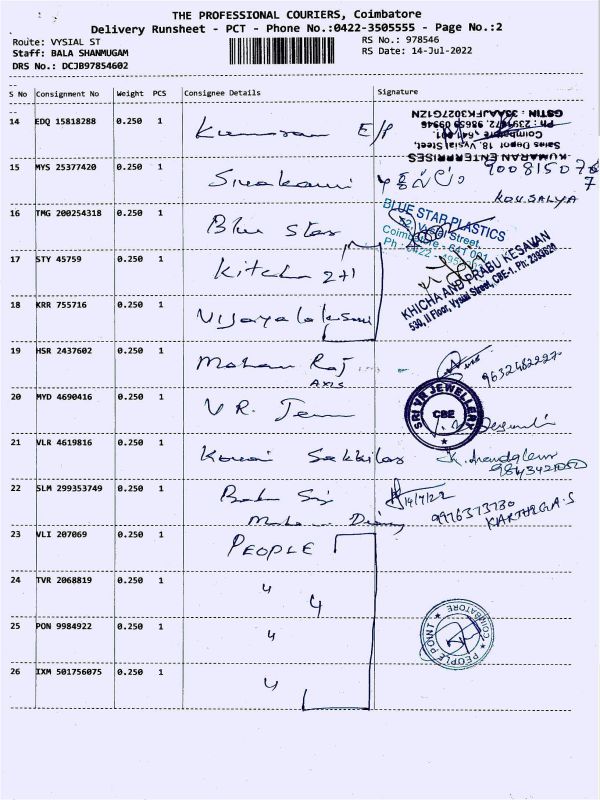 THE PROFESSIONAL COURIERS, Coimbatore
Delivery Runsheet - PCT - Phone No.:0422-3505555 - Page No.:2
Route: VYSIAL ST
RS No.: 978546
Staff: BALA SHANMUGAM
RS Date: 14-Jul-2022
DRS No.: DCJB97854602
S No Consignment No Weight PCS Consignee Details Signature
14 EDQ 15818288 0.250 1 Kumaran E/P
GSTIN : 33AAKFK3027G1ZN
Coimbatore - 641 001.
Sales Depot 18, Vysial Street,
KUMARAN ENTERPRISES
15 MYS 25377420 0.250 1 Sivakami
KOUSALYA
16 TMG 200254318 0.250 1 Blue Star
BLUE STAR PLASTICS
52, Vysial Street,
Coimbatore - 641 001
17 STY 45759 0.250 1 Kitcha 2+1
KHICHA AND PRABU KESAVAN
530, II Floor, Vysial Street, CBE-1. Ph: 2393620
18 KRR 755716 0.250 1 Vijayalakshmi
19 HSR 2437602 0.250 1 Mohan Raj
AXIS
9632482220
20 MYD 4690416 0.250 1 V.R. Jew
SRI VR JEWELLERY
CBE
21 VLR 4619816 0.250 1 Kovai Sakkilas
9843421050
22 SLM 299353749 0.250 1
14/7/22
9976373730
KARTHIGA.S
23 VLI 207069 0.250 1 PEOPLE
24 TVR 2068819 0.250 1 "
25 PON 9984922 0.250 1 "
PEOPLE POINT COIMBATORE
26 IXM 501756075 0.250 1 "